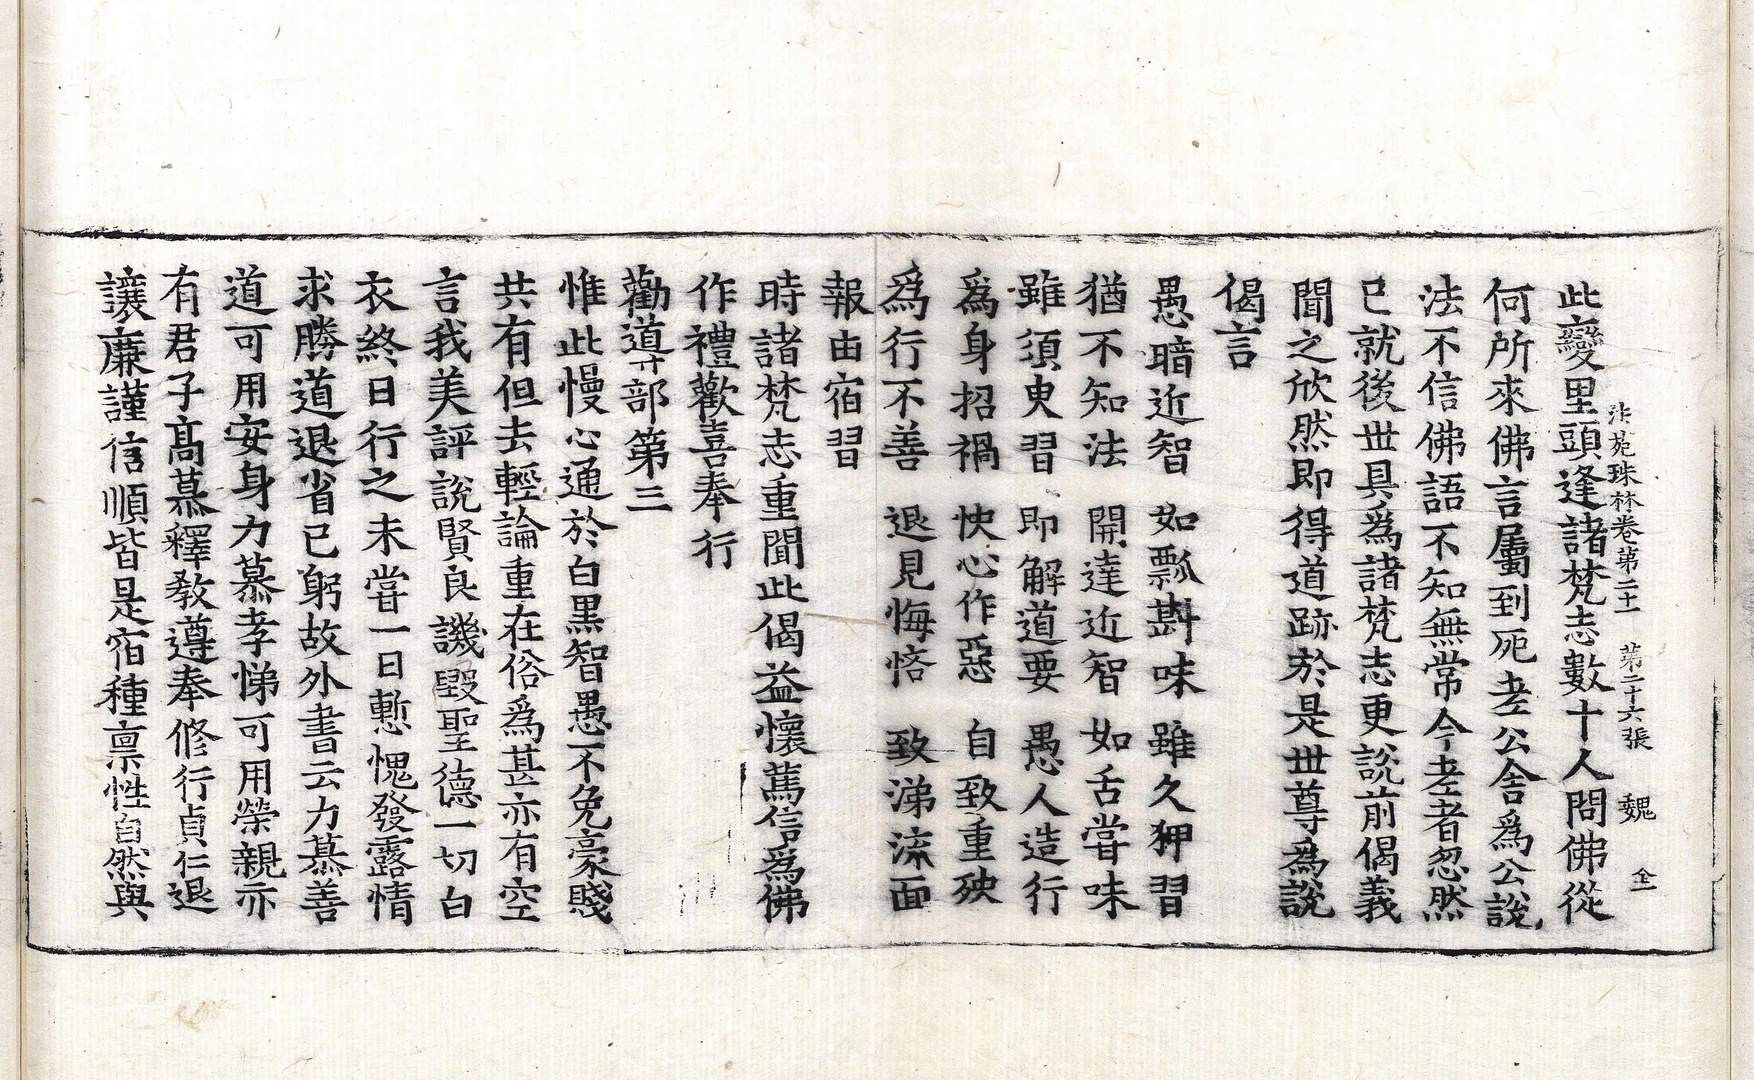 法苑珠林卷第二十一 第二十六張 魏 全
此變里頭逢諸梵志數十人問佛從
何所來佛言屬到死老公舍爲公說
法不信佛語不知無常今老者忽然
已就後世具爲諸梵志更說前偈義
聞之欣然即得道跡於是世尊爲說
偈言
愚暗近智 如瓢斟味 雖久狎習
猶不知法 開達近智 如舌嘗味
雖須臾習 即解道要 愚人造行
爲身招禍 快心作惡 自致重殃
爲行不善 退見悔悋 致涕流面
報由宿習
時諸梵志重聞此偈益懷篤信爲佛
作禮歡喜奉行
勸導部第三
惟此慢心通於白黑智愚不免豪賤
共有但去輕論重在俗爲甚亦有空
言我美評說賢良譏毀聖德一切白
衣終日行之未嘗一日慙愧發露情
求勝道退省己躬故外書云力慕善
道可用安身力慕孝悌可用榮親亦
有君子高慕釋教遵奉修行貞仁退
讓廉謹信順皆是宿種禀性自然與